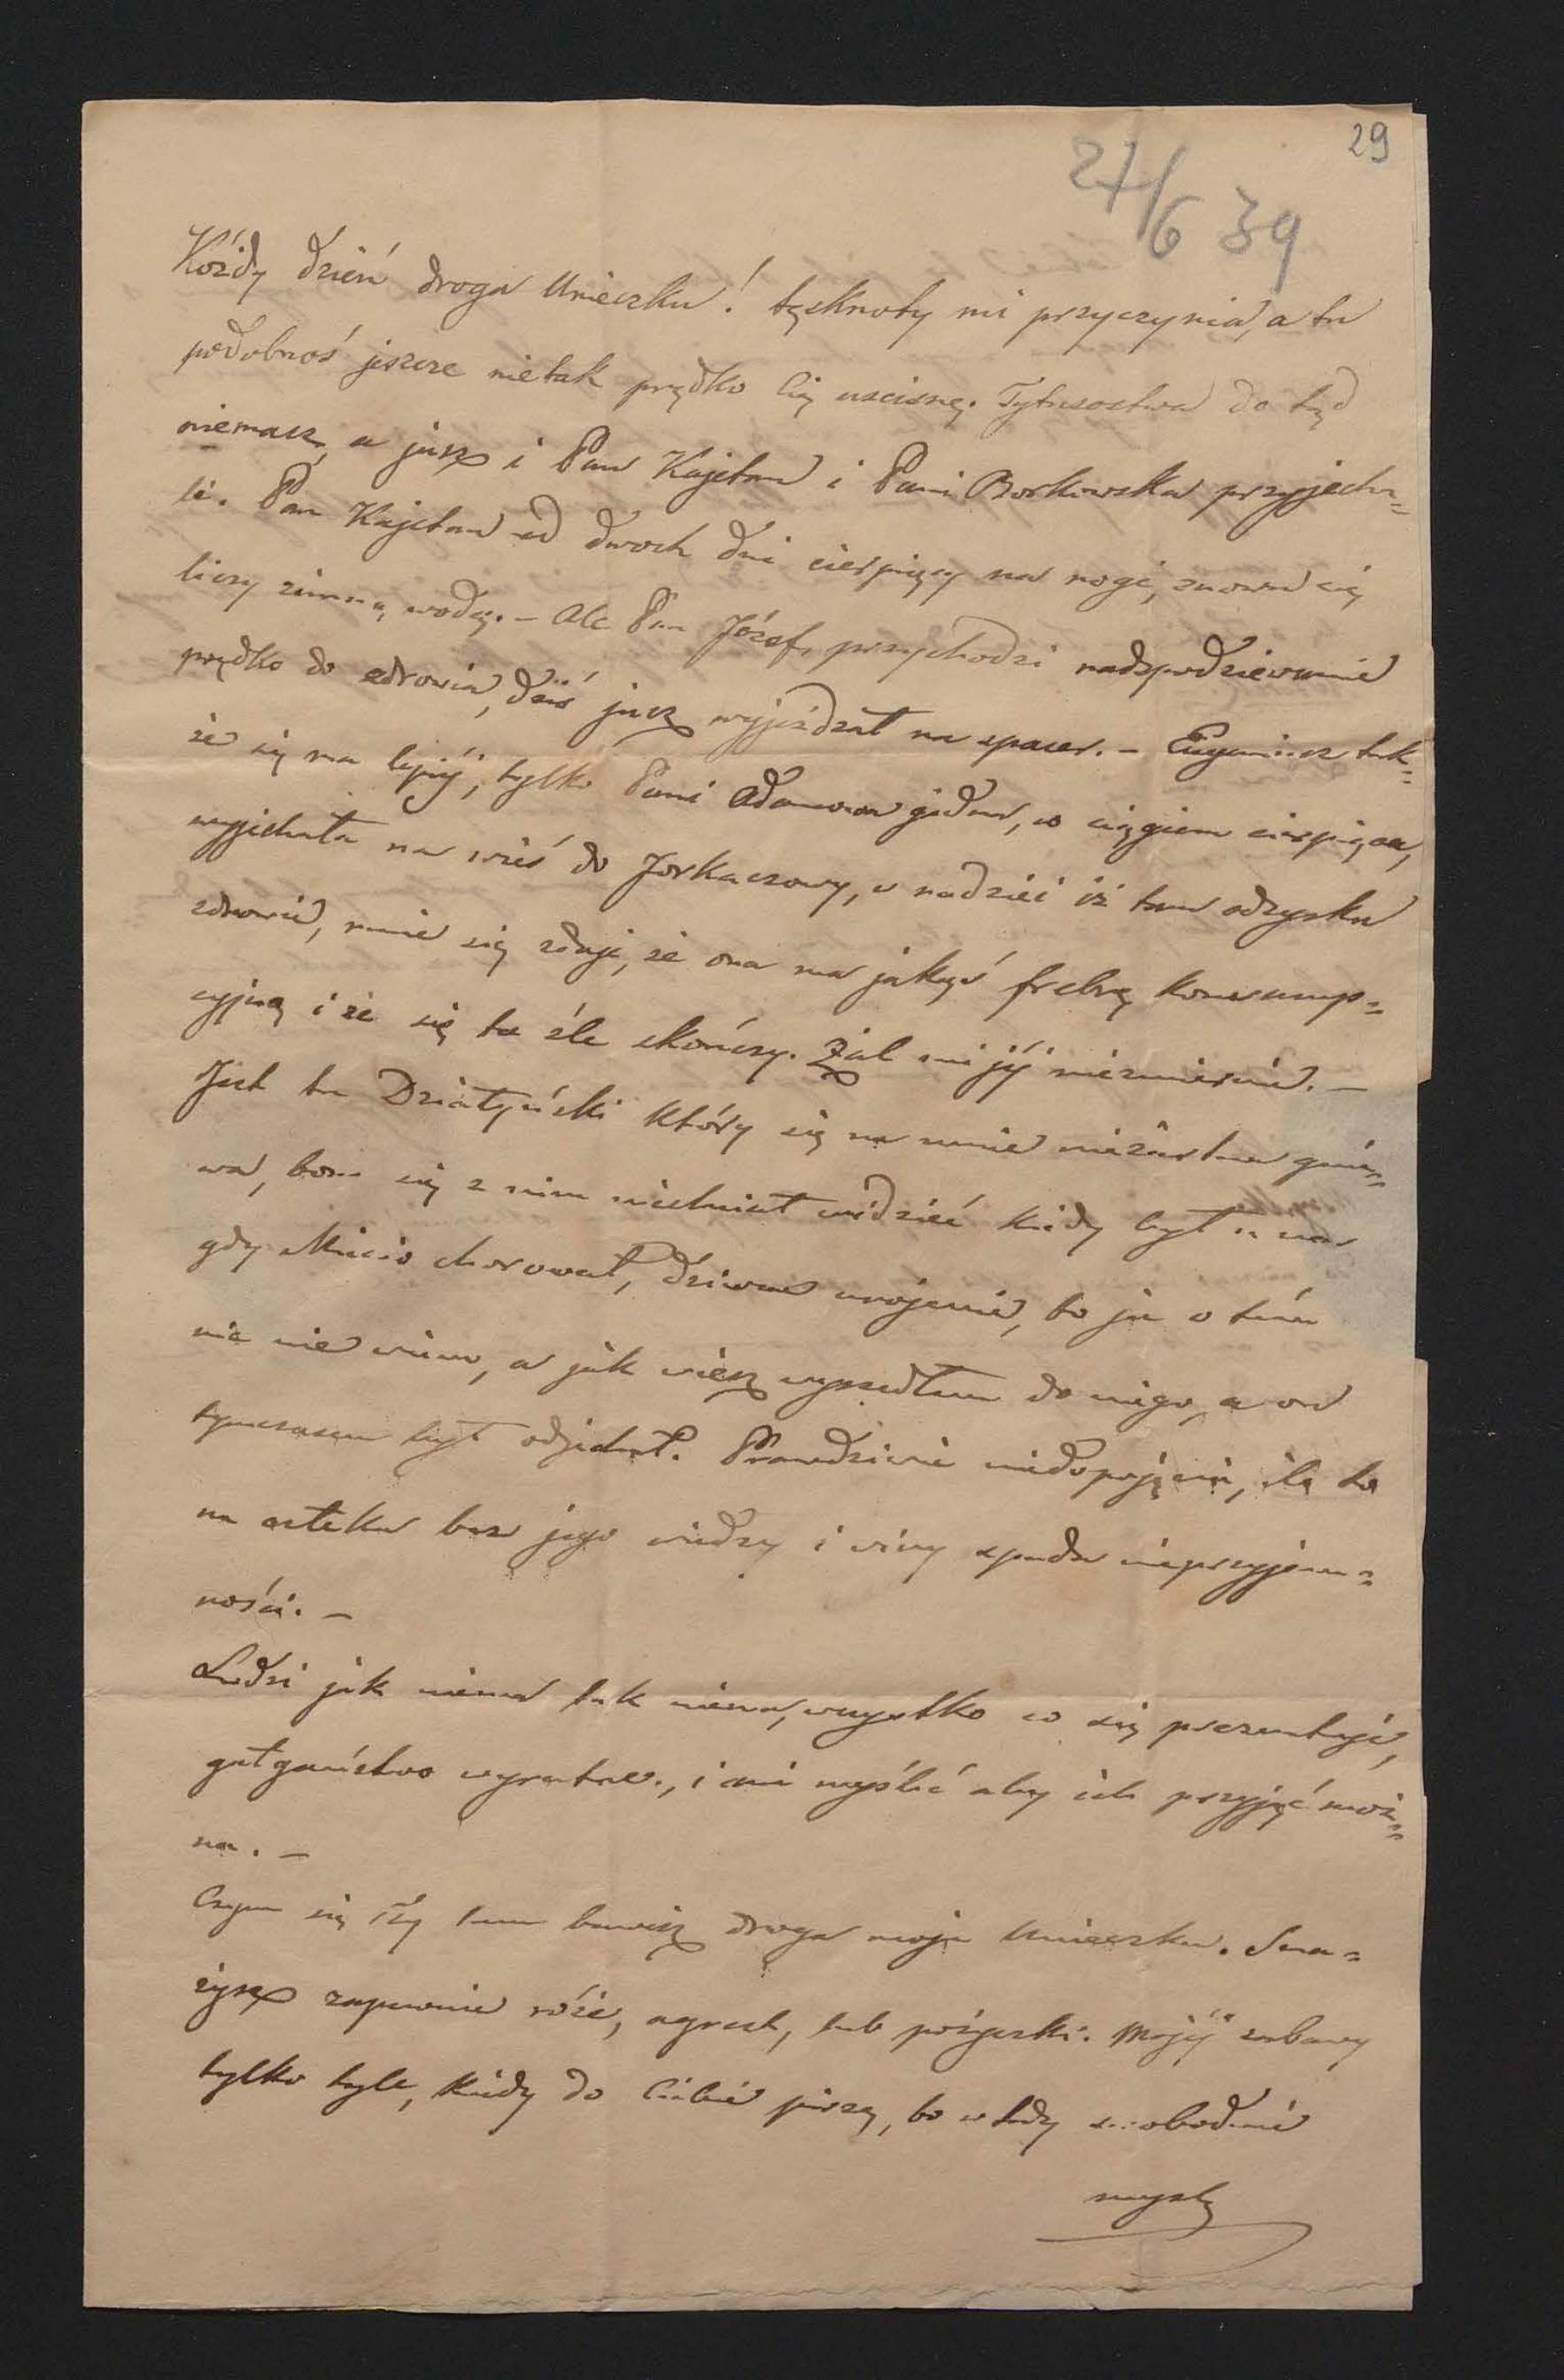 29
27/6 39
Kóżdy dzień droga Unieczku! tęsknoty mi przyczynia, a tu
podobnoś jeszcze nietak prędko Cię uscisnę. Tytusostwa do tąd
niemasz, a jusz i Pan Kajetan i Pani Borkowska przyjecha=
li. Pan Kajetan od dwoch dni cierpięcy na nogi, znowu się
liczy zimną wodą. – Ale Pan Józef, przychodzi nadspodziewanie
prędko do zdrowia, dziś jusz wyjeżdzał na spacer. – Eugeniusz tak=
że się ma lepiéj, tylko Pani Adamowa jedna, w ciągiem cierpiąca,
wyjechała na wieś do Jorkaczowy, w nadziei iż tam odzyska
zdrowie, mnie się zdaje, że ona ma jakąś febrę konsump=
cyjną i że się to źle skończy. Żal mi jéj niezmiernie. –
Jest tu Działyński który się na mnie niezarta gnié=
wa, bom się z nim niechciał widzieć kiedy był u nas
gdy Micio chorował, dziwne urojenie, bo ja o tém
nic nie wiem, a jak wiesz wyszedłem do niego, a on
tymczasem był odjechał. Prawdziwie niedopojęcia, ile to
na człeka bez jego wiedzy i winy spada nieprzyjem=
ności. –
Ludzi jak niema tak niema, wszystko co się prezentuje,
gałgaństwo wyratne, i ani myśleć aby ich przyjąć moż=
na. –
Czym się Ty tam bawisz droga moja Unieczku. Sma=
żysz zapewnie róże, agrest, lub pożyczki. Mojéj zabawy
tylko tyle, kiedy do Ciebie piszę, bo wtedy swobodnié
myslę